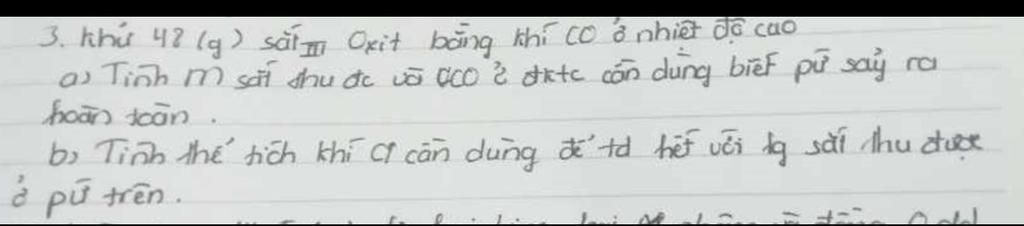 3. khử 48 (g) sắt III Oxit bằng khí CO ở nhiệt độ cao
a) Tính m sắt thu đc và CO ở đktc cần dùng biết pứ sảy ra
hoàn toàn.
b) Tính thể tích khí Cl cần dùng để td hết với lg sắt thu được
ở pứ trên.